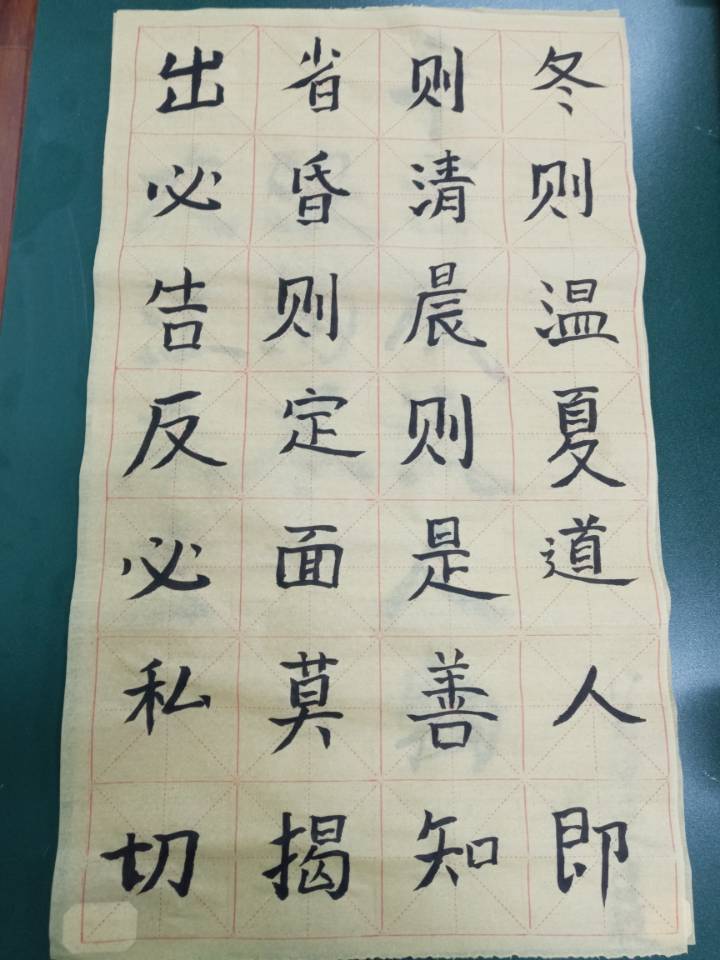 冬则温夏道人即
则清晨则是善知
省昏则定面莫揭
出必告反必私切